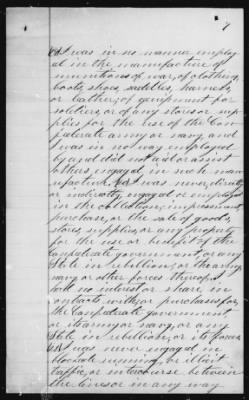 7
I was in no manner employ
ed in the manufacture of
munitions of war, of clothing,
boots, shoes, saddles, harness,
or leather, of equipment for
soldiers, or of any stores or sup
plies for the use of the Con
federate army or navy, and
I was in no way employed
by and did not aid or assist
others engaged in such man
ufacture. I was never, directly
or indirectly, engaged or employed
in the collection, impressment
purchase, or the sale of goods,
stores, supplies, or any property
for the use or benefit of the
Confederate government, or any
State in rebellion, or the army,
navy or other forces thereof. I
had no interest or share in
contracts with, or purchases for,
the Confederate government
or its army or navy, or any
State in rebellion, or its forces
I was never engaged in
blockade running, or illicit
traffic, or intercourse between
the lines or in any way